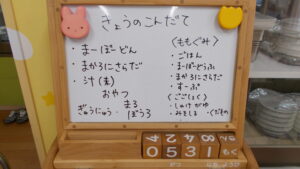 きょうのこんだて
・まーぼーどん
・まかろにさらだ
・汁(ま)
おやつ
ぎゅうにゅう・まるぼうろ
<ももぐみ>
・ごはん
・まーぼーどうふ
・まかろにさらだ
・すーぷ
・しゃけがゆ
・みそしる ・くだもの
0531
もく